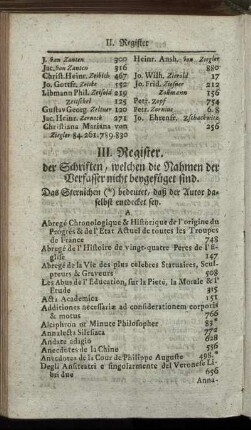 II. Register
J. von Zanten 300
Jac. von Zanten 316
Christ. Heinr. Zeibich 467
Jo. Gottfr. Zeiche 152
Libmann Phil. Zeisold 219
Zeitschel 125
Gustav Georg Zeltner 120
Jac. Heinr. Zerneck 271
Christiana Mariana von
Ziegler 84. 261. 789. 830
Heinr. Ansh. von Ziegler
880
Jo. Wilh. Zierold 17
Jo. Frid. Zießner 212
Zollmann 156
Petr. Zopf 754
Petr. Zornius 6. 8
Jo. Ehrenfr. Zschackwitz
256
III. Register.
der Schriften, welchen die Nahmen der
Verfasser nicht beygefüget sind.
Das Sternlichen (*) bedeutet, daß der Autor da-
selbst entdecket sey.
A
Abregé Chronologique & Historique de l'origine du
Progrès & de l'Etat Actuel de toutes les Troupes
de France 748
Abregé de l'Histoire de vingt-quatre Peres de l'E-
glise 147
Abregé de la Vie des plus celebres Statuaires, Sculp-
pteurs & Graveurs 508
Les Abus de l'Education, sur la Pieté, la Morale & l'
Etude 815
Acta Academica 151
Additiones necessariæ ad considerationem corporis
& motus 766
Alciphron or Minute Philosopher 83*
Annalecta Silesiata 772
Andate adagio 628
Anecdotes de la Chine 596
Anecdotes de la Cour de Philippe Auguste 498.*
Degli Anfiteatri e singolarmente del Veronese Li-
bri due 656
Anna-